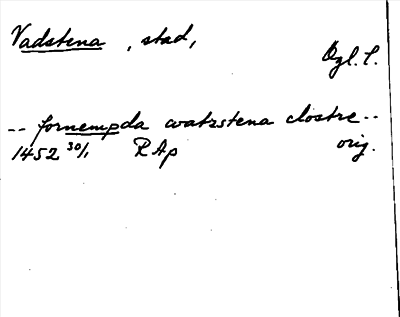 Vadstena, stad,
Ögl. l.
-- fornempda watzstena clostre --
1452 30/1 RAp orig.